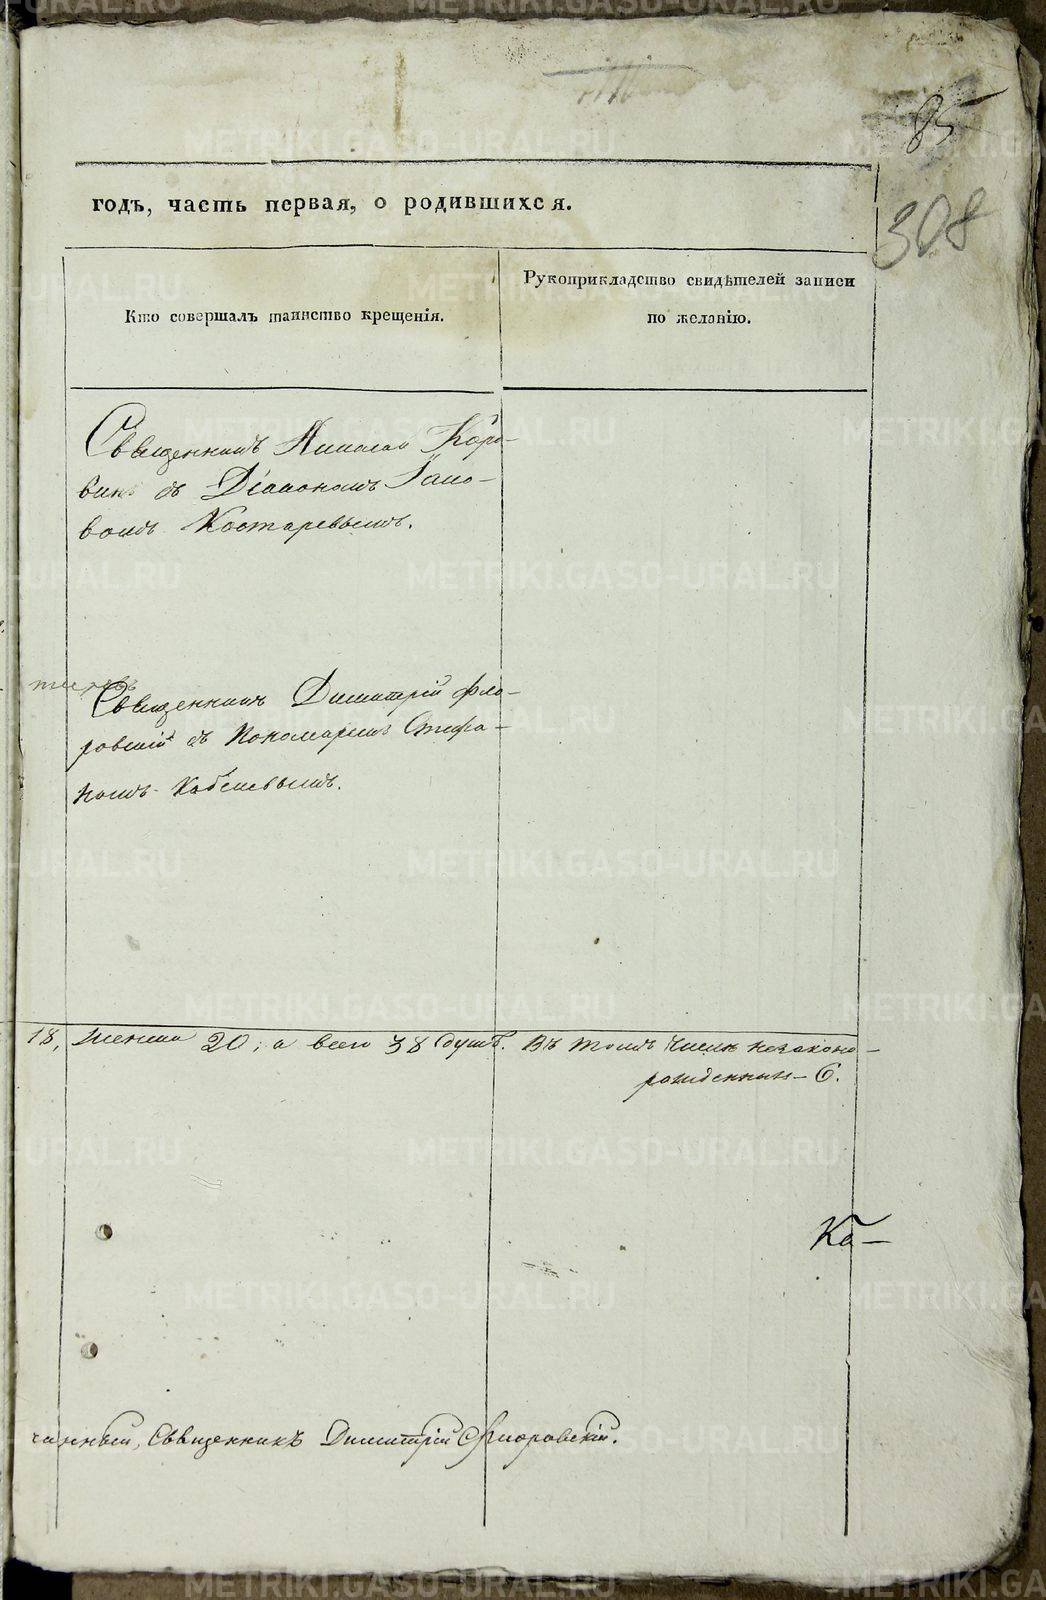 85
308
годъ, часть первая, о родившихся.
Кто совершалъ таинство крещенія.
Рукоприкладство свидѣтелей записи
по желанію.
Священникъ Николай Коро-
винъ съ Діакономъ Іако-
вомъ Костаревымъ.
Священникъ Димитрій Фло-
ровскій съ Пономаремъ Стефа-
номъ
18, женска 20, а всего 38 душъ. Въ томъ числѣ незаконно-
рожденныхъ 6.
Ка-
чинный, Священникъ Димитрій Флоровскій.
METRIKI.GASO-URAL.RU